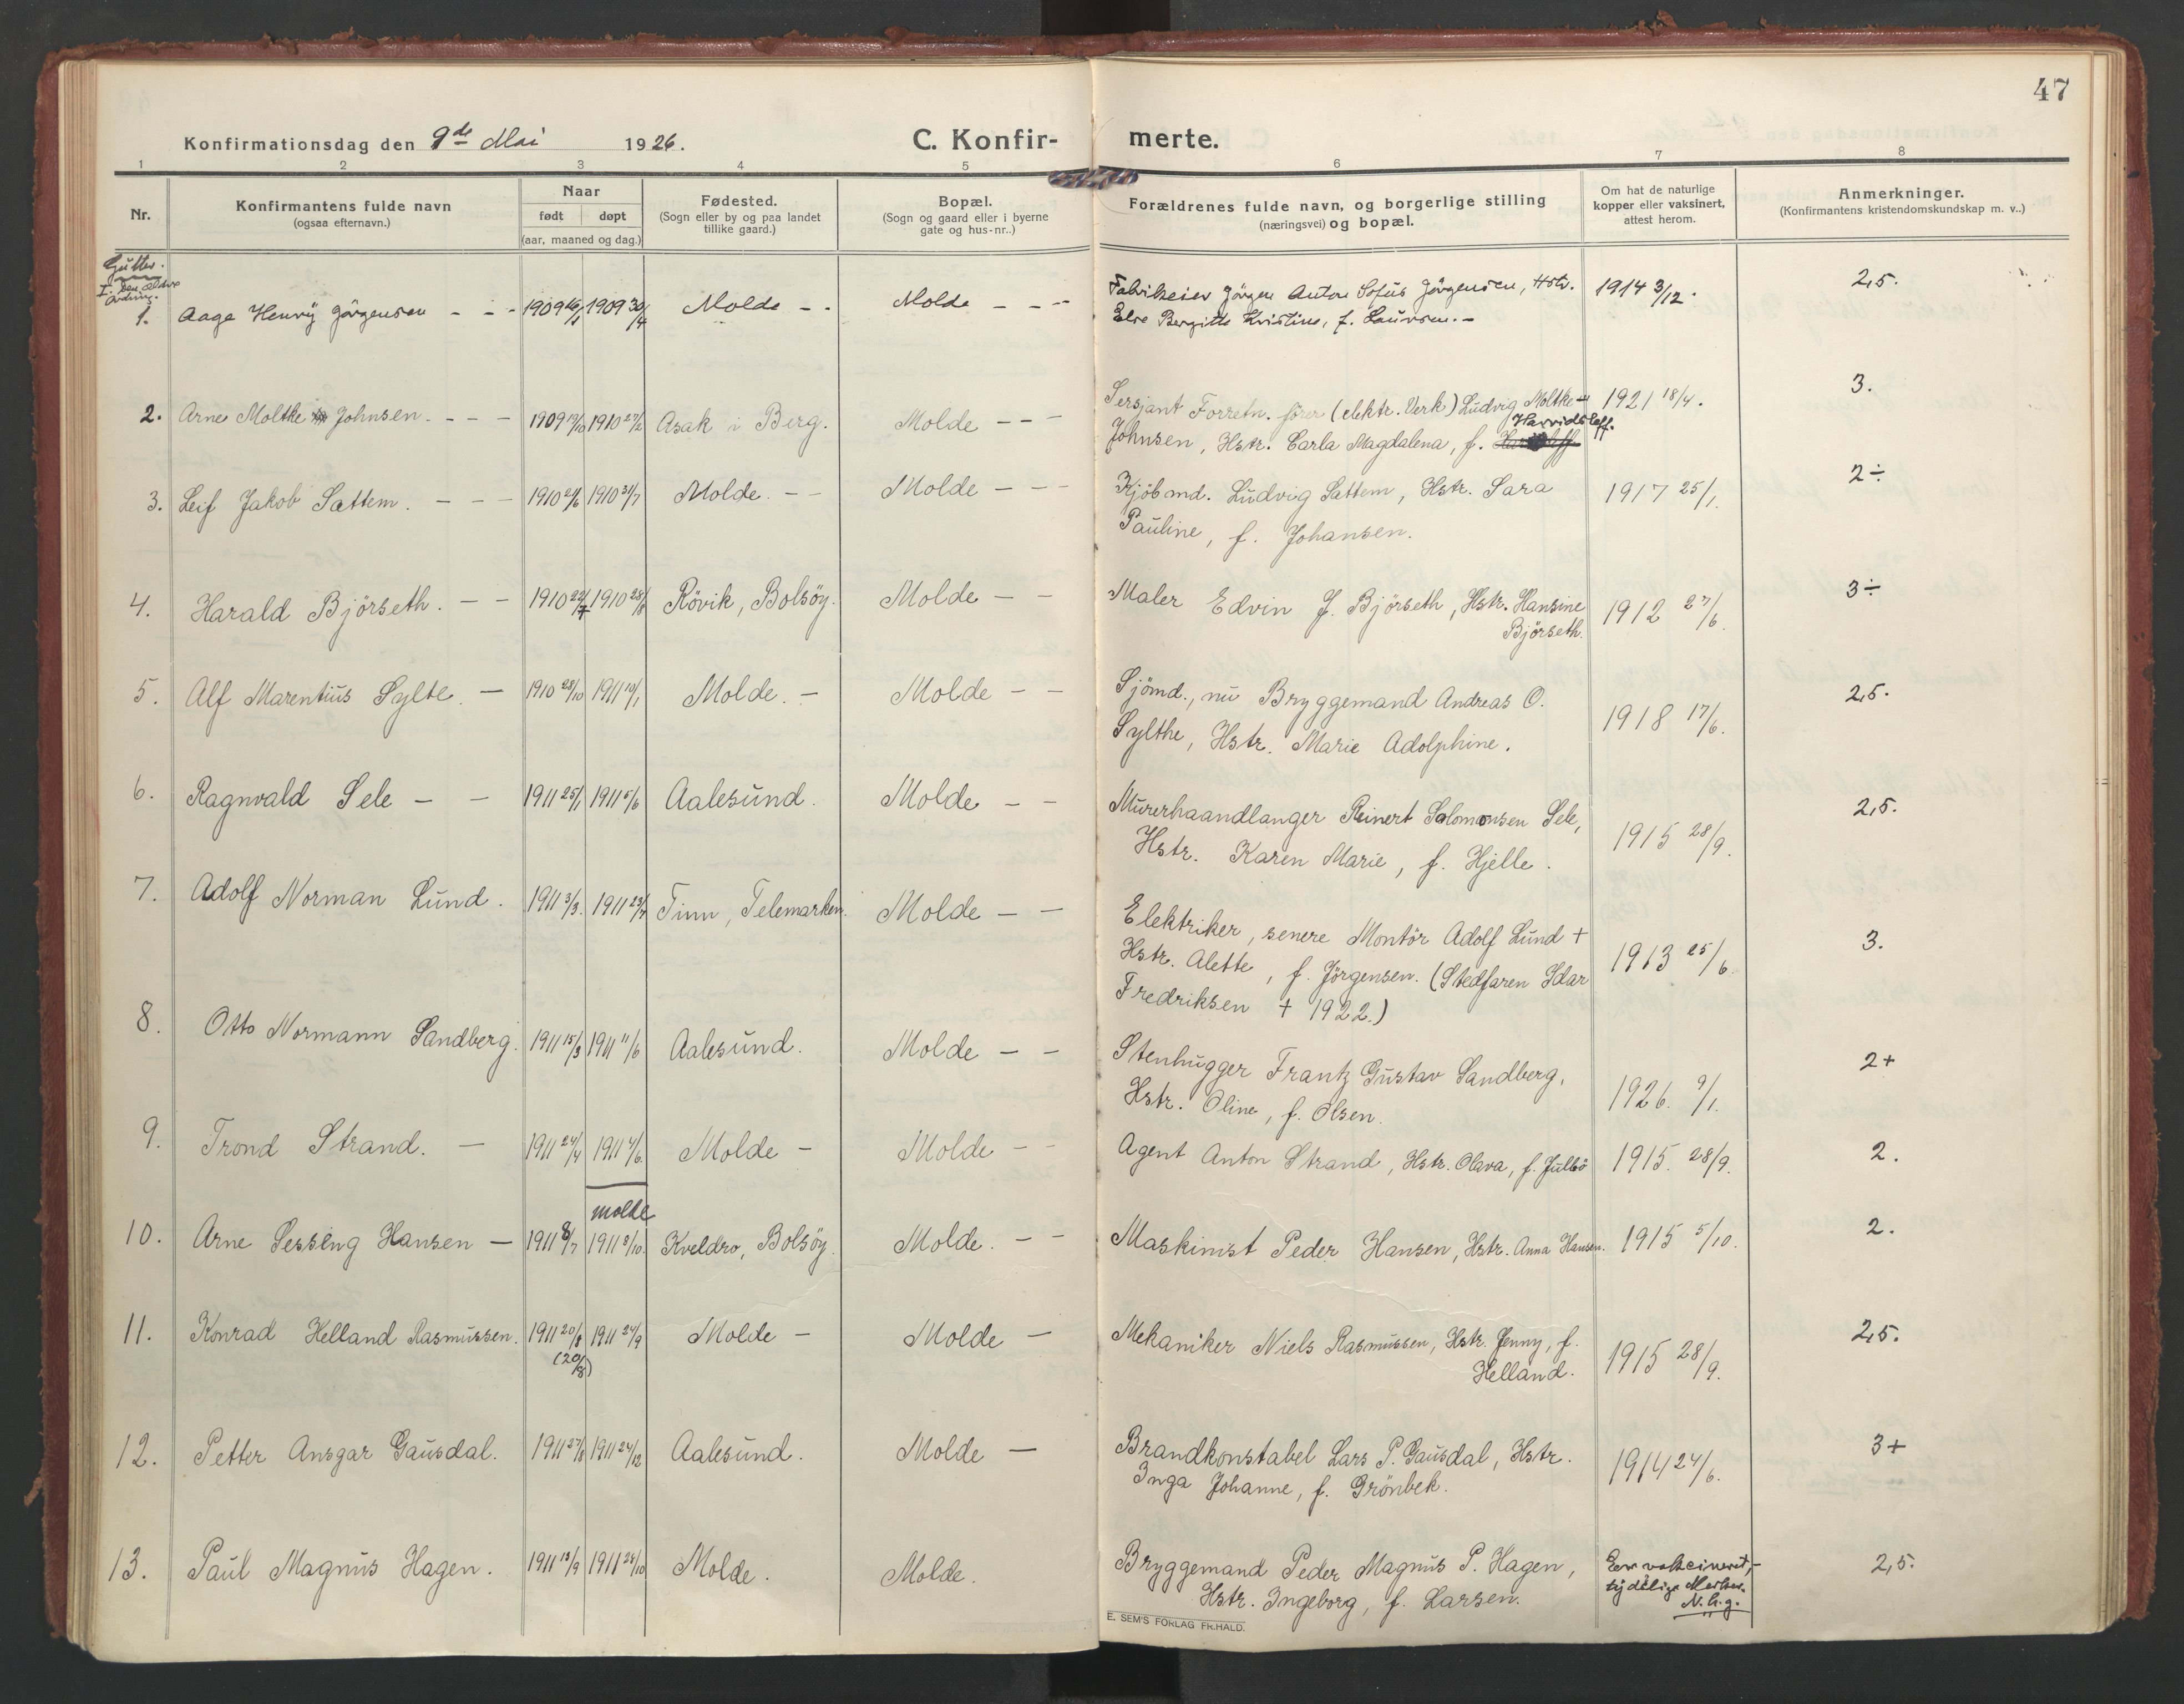 47
Konfirmationsdag den 9de Mai 1926.
C. Konfir- merte.
1 2 3 4 5 6 7 8
Nr.
Konfirmantens fulde navn
(ogsaa efternavn.)
Naar
født døpt
(aar, maaned og dag.)
Fødested.
(Sogn eller by og paa landet
tillike gaard.)
Bopæl.
(Sogn og gaard eller i byerne
gate og hus-nr..)
Forældrenes fulde navn, og borgerlige stilling
(næringsvei) og bopæl.
Om hat de naturlige
kopper eller vaksinert,
attest herom.
Anmerkninger.
(Konfirmantens kristendomskundskap m. v..)
Gutter.
I. Den ældre
ordning.
1. Aage Henry Jörgensen - - - 1909 1909 30/4 Molde - - Molde - - - Fabrikeier Jörgen Anton Sofus Jörgensen, Hstr. 1914 3/12. 2,5.
Else Bergitte Kristine, f. Laursen. -
2. Arne Moltke Johnsen. - - - 1909 19/10 1910 27/2 Asak i Berg. Molde - - Sersjant Forretn. fører (elektr. Verk) Ludvig Moltke 1921 18/4. 3.
Harridsleff.
Johnsen, Hstr. Carla Magdalena, f.
3. Leif Jakob Sættem. - - - 1910 21/6 1910 31/7 Molde. - - Molde - - - Kjöbmd. Ludvig Sættem, Hstr. Sara 1917 25/1. 2÷
Pauline, f. Johansen.
4. Harald Björseth. - - 1910 22/7 1910 28/8 Rövik, Bolsöy. Molde - - Maler Edvin J. Björseth, Hstr. Hansine 1912 27/6. 3÷
Björseth.
5. Alf Marentius Sylte. - 1910 28/10 1911 10/1 Molde. - Molde - - Sjömd., nu Bryggemand Andreas O. 1918 17/6. 2,5.
Sylthe, Hstr. Marie Adolphine.
6. Ragnvald Sele - - 1911 25/1 1911 5/6 Aalesund. Molde - - Murerhaandlanger Reinert Salomonsen Sele, 1915 28/9. 2,5.
Hstr. Karen Marie, f. Hjelle.
7. Adolf Norman Lund. 1911 3/3. 1911 23/7 Tinn, Telemarken. Molde - - Elektriker, senere Montör Adolf Lund + 1913 25/6. 3.
Hstr. Alette, f. Jörgensen. (Stedfaren Idar
Fredriksen + 1922.)
8. Otto Normann Sandberg. 1911 15/3 1911 11/6 Aalesund. Molde - - Stenhugger Frantz Gustav Sandberg, 1926. 9/1. 2+
Hstr. Oline, f. Olsen.
9. Trond Strand. - 1911 24/4 1911 4/6. Molde - Molde - - Agent Anton Strand, Hstr. Olava, f. Julbö 1915. 28/9. 2.
Molde
10. Arne Sessing Hansen - 1911 8/7 1911 8/10. Kveldro, Bolsöy. Molde. - - Maskinist Peder Hansen, Hstr. Anna Hansen. 1915 5/10. 2.
11. Konrad Helland Rasmussen. 1911 20/8 1911 24/9 Molde - Molde - Mekaniker Niels Rasmussen, Hstr. Jenny, f. 1915 28/9. 2,5.
(20/8) Helland.
12. Petter Ansgar Gausdal. 1911 27/8 1911 24/12 Aalesund. Molde - Brandkonstabel Lars P. Gausdal, Hstr. 1914 24/6. 3+
Inga Johanne, f. Grönbek.
13. Paul Magnus Hagen. 1911 13/9 1911 28/10 Molde. Molde. Bryggemand Peder Magnus P. Hagen, Er vakcineret,- 2,5.
Hstr. Ingeborg, f. Larsen. tydelige Merker.
N. G. g.
E. SEM'S FORLAG FR.HALD.